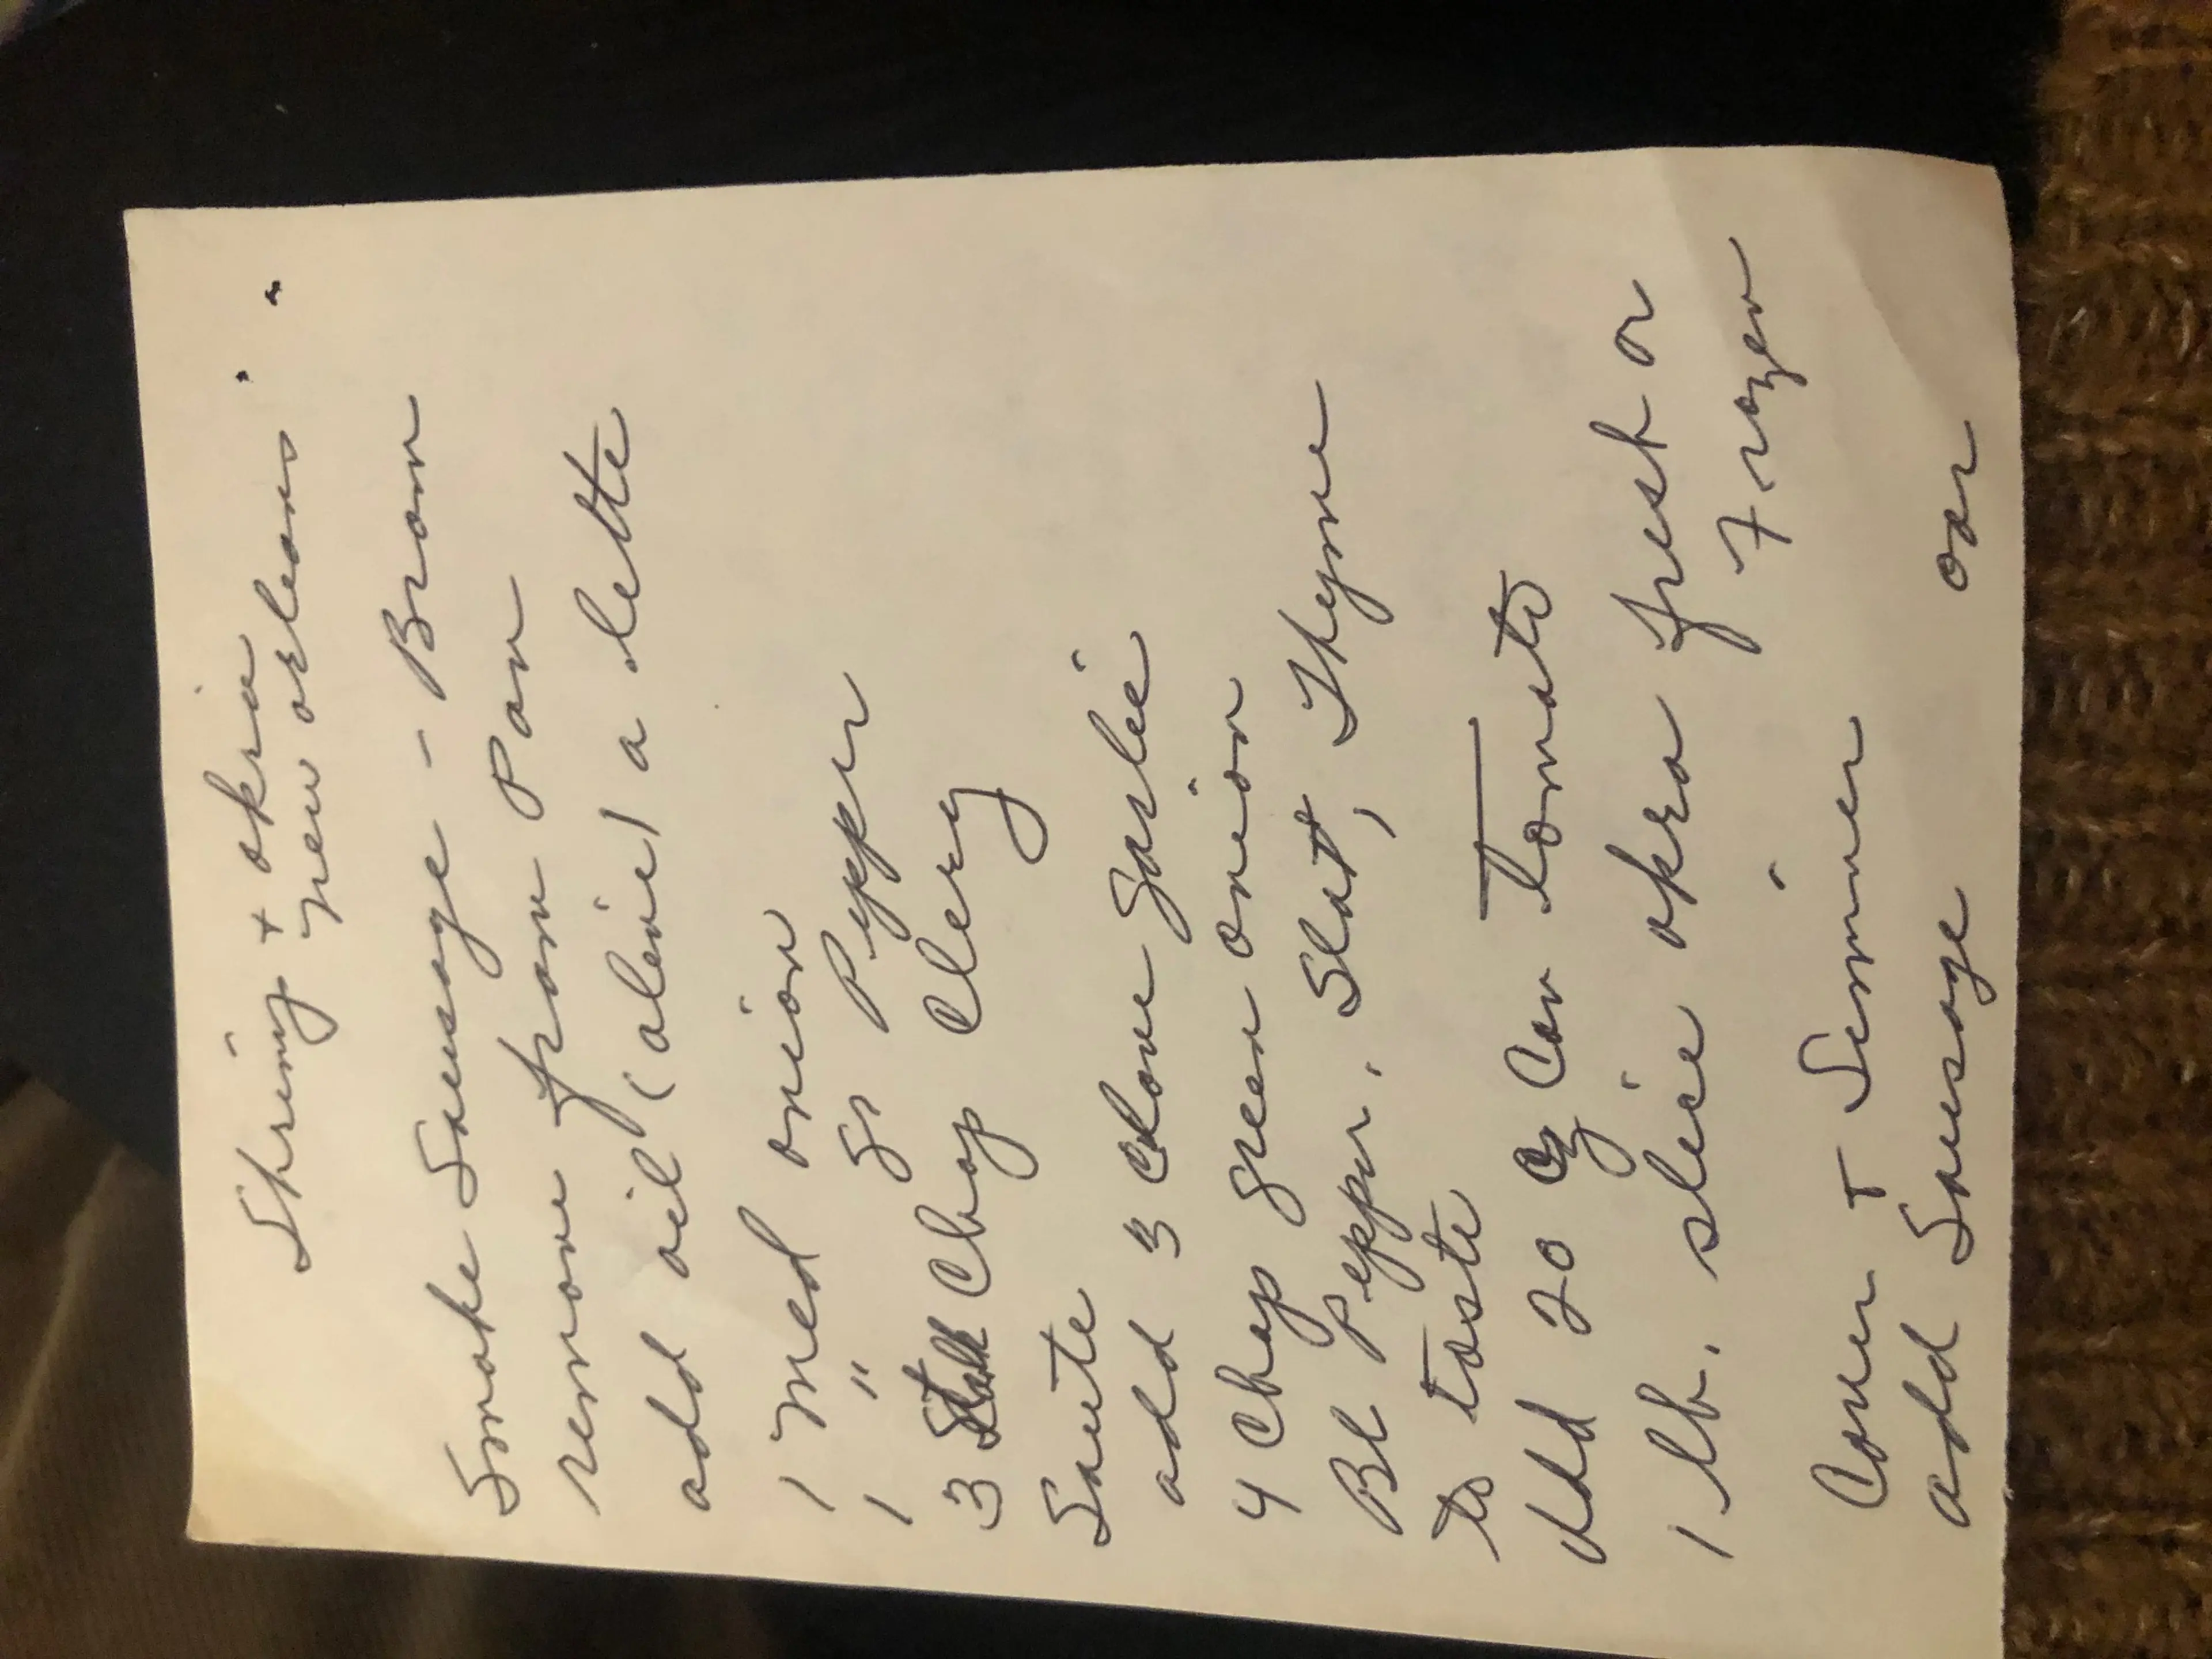 Shrimp + okra
new orleans
Smoke Sausage - Brown
remove from Pan
add oil (olive) a little
1 Med onion
1 " Gr Pepper
3 Stalk Chop Clery
Saute
add 3 clove garlic
4 Chop green onion
Bl Pepper. Slat, Thyme
to taste
Add 20 oz Can tomato
1 lb. slice okra fresh or
Frozen
Cover + Simmer
add Sausage or